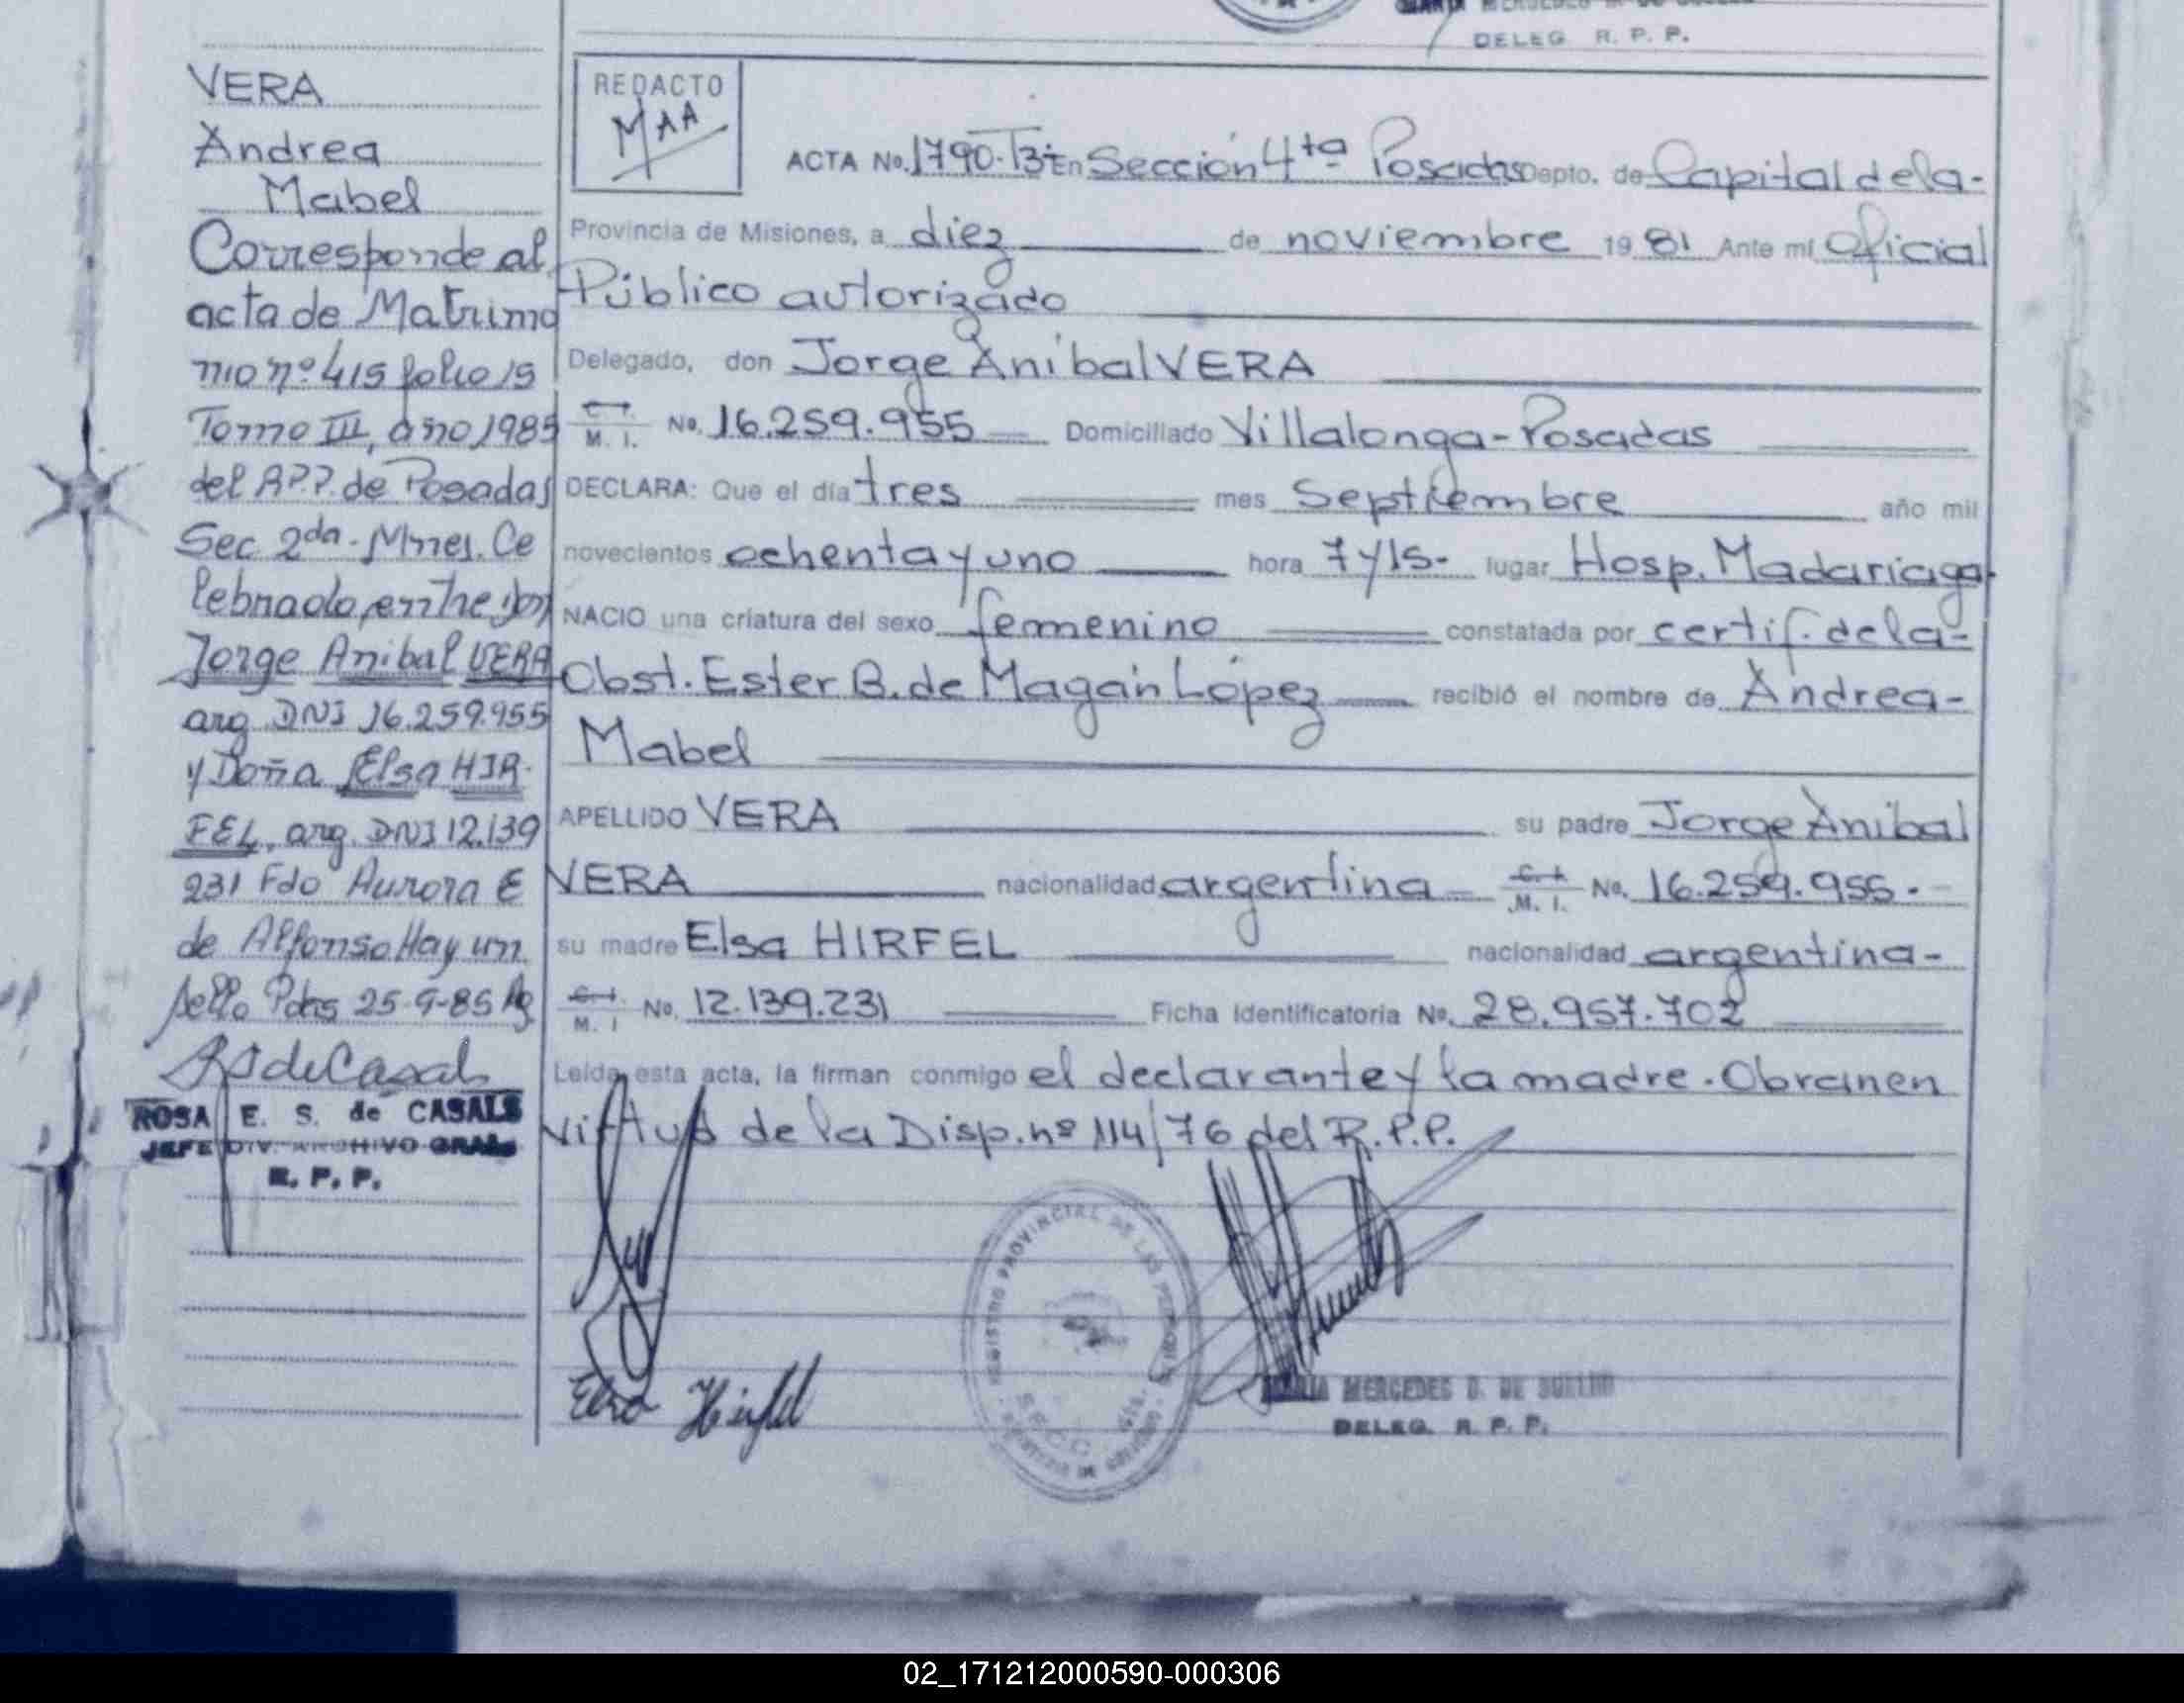 DELEG. R. P. P.
VERA
Andrea
Mabel
Corresponde al
acta de Matrimo
nio nº 415 folio 15
Tomo III, año 1985
del R.P.P. de Posadas
Sec 2da - Mnes. Ce
lebrado, entre don
Jorge Anibal VERA
arg. DNI 16.259.955
y Doña Elsa HIR-
FEL, arg. DNI 12.139
231 Fdo Aurora E
de Alfonso Hay un
sello Pdas 25-9-85
RS de Casals
ROSA E. S. de CASALS
JEFE DIV. ARCHIVO GRAL.
R. P. P.
REDACTO
MAA
ACTA No. 1790-T3º En Sección 4ta Posadas Depto. de Capital de la-
Provincia de Misiones, a diez de noviembre 19 81 Ante mí Oficial
Público autorizado
Delegado, don Jorge Aníbal VERA
C. I. M. I. No. 16.259.955 Domiciliado Villalonga-Posadas
DECLARA: Que el día tres mes Septiembre año mil
novecientos ochenta y uno hora 7 y 15- lugar Hosp. Madariaga-
NACIO una criatura del sexo femenino constatada por certif. de la-
Obst. Ester B. de Magán López recibió el nombre de Andrea-
Mabel
APELLIDO VERA su padre Jorge Aníbal
VERA nacionalidad argentina C. I. M. I. No. 16.259.955.-
su madre Elsa HIRFEL nacionalidad argentina-
C. I. M. I No. 12.139.231 Ficha Identificatoria No. 28.957.702
Leída esta acta, la firman conmigo el declarante y la madre. Obran en
virtud de la Disp. nº 114/76 del R.P.P.
REGISTRO PROVINCIAL DE LAS PERSONAS
Elsa Hirfel
MERCEDES D. DE
DELEG. R. P. P.
02_171212000590-000306